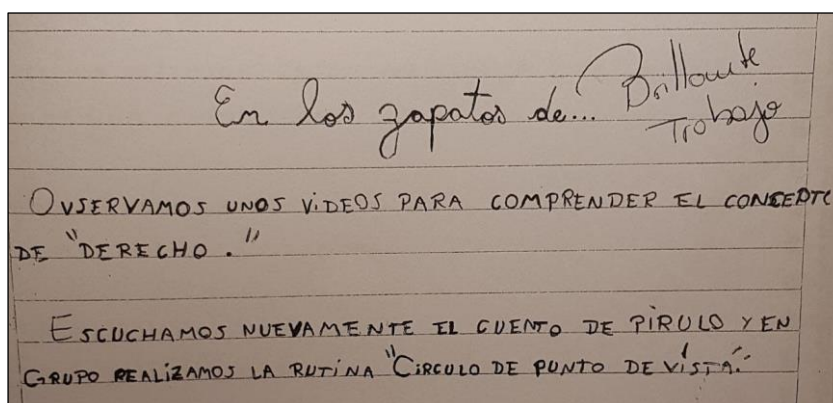 En los zapatos de... Brillante
Trabajo
OVSERVAMOS UNOS ViDEOS PARA COMPRENDER EL CONSEPTO
DE "DERECHO."
ESCUCHAMOS NUEVAMENTE EL CUENTO DE PiRULO Y EN
GRUPO REALiZAMOS LA RUTiNA "CiRCULO DE PUNTO DE ViSTA."